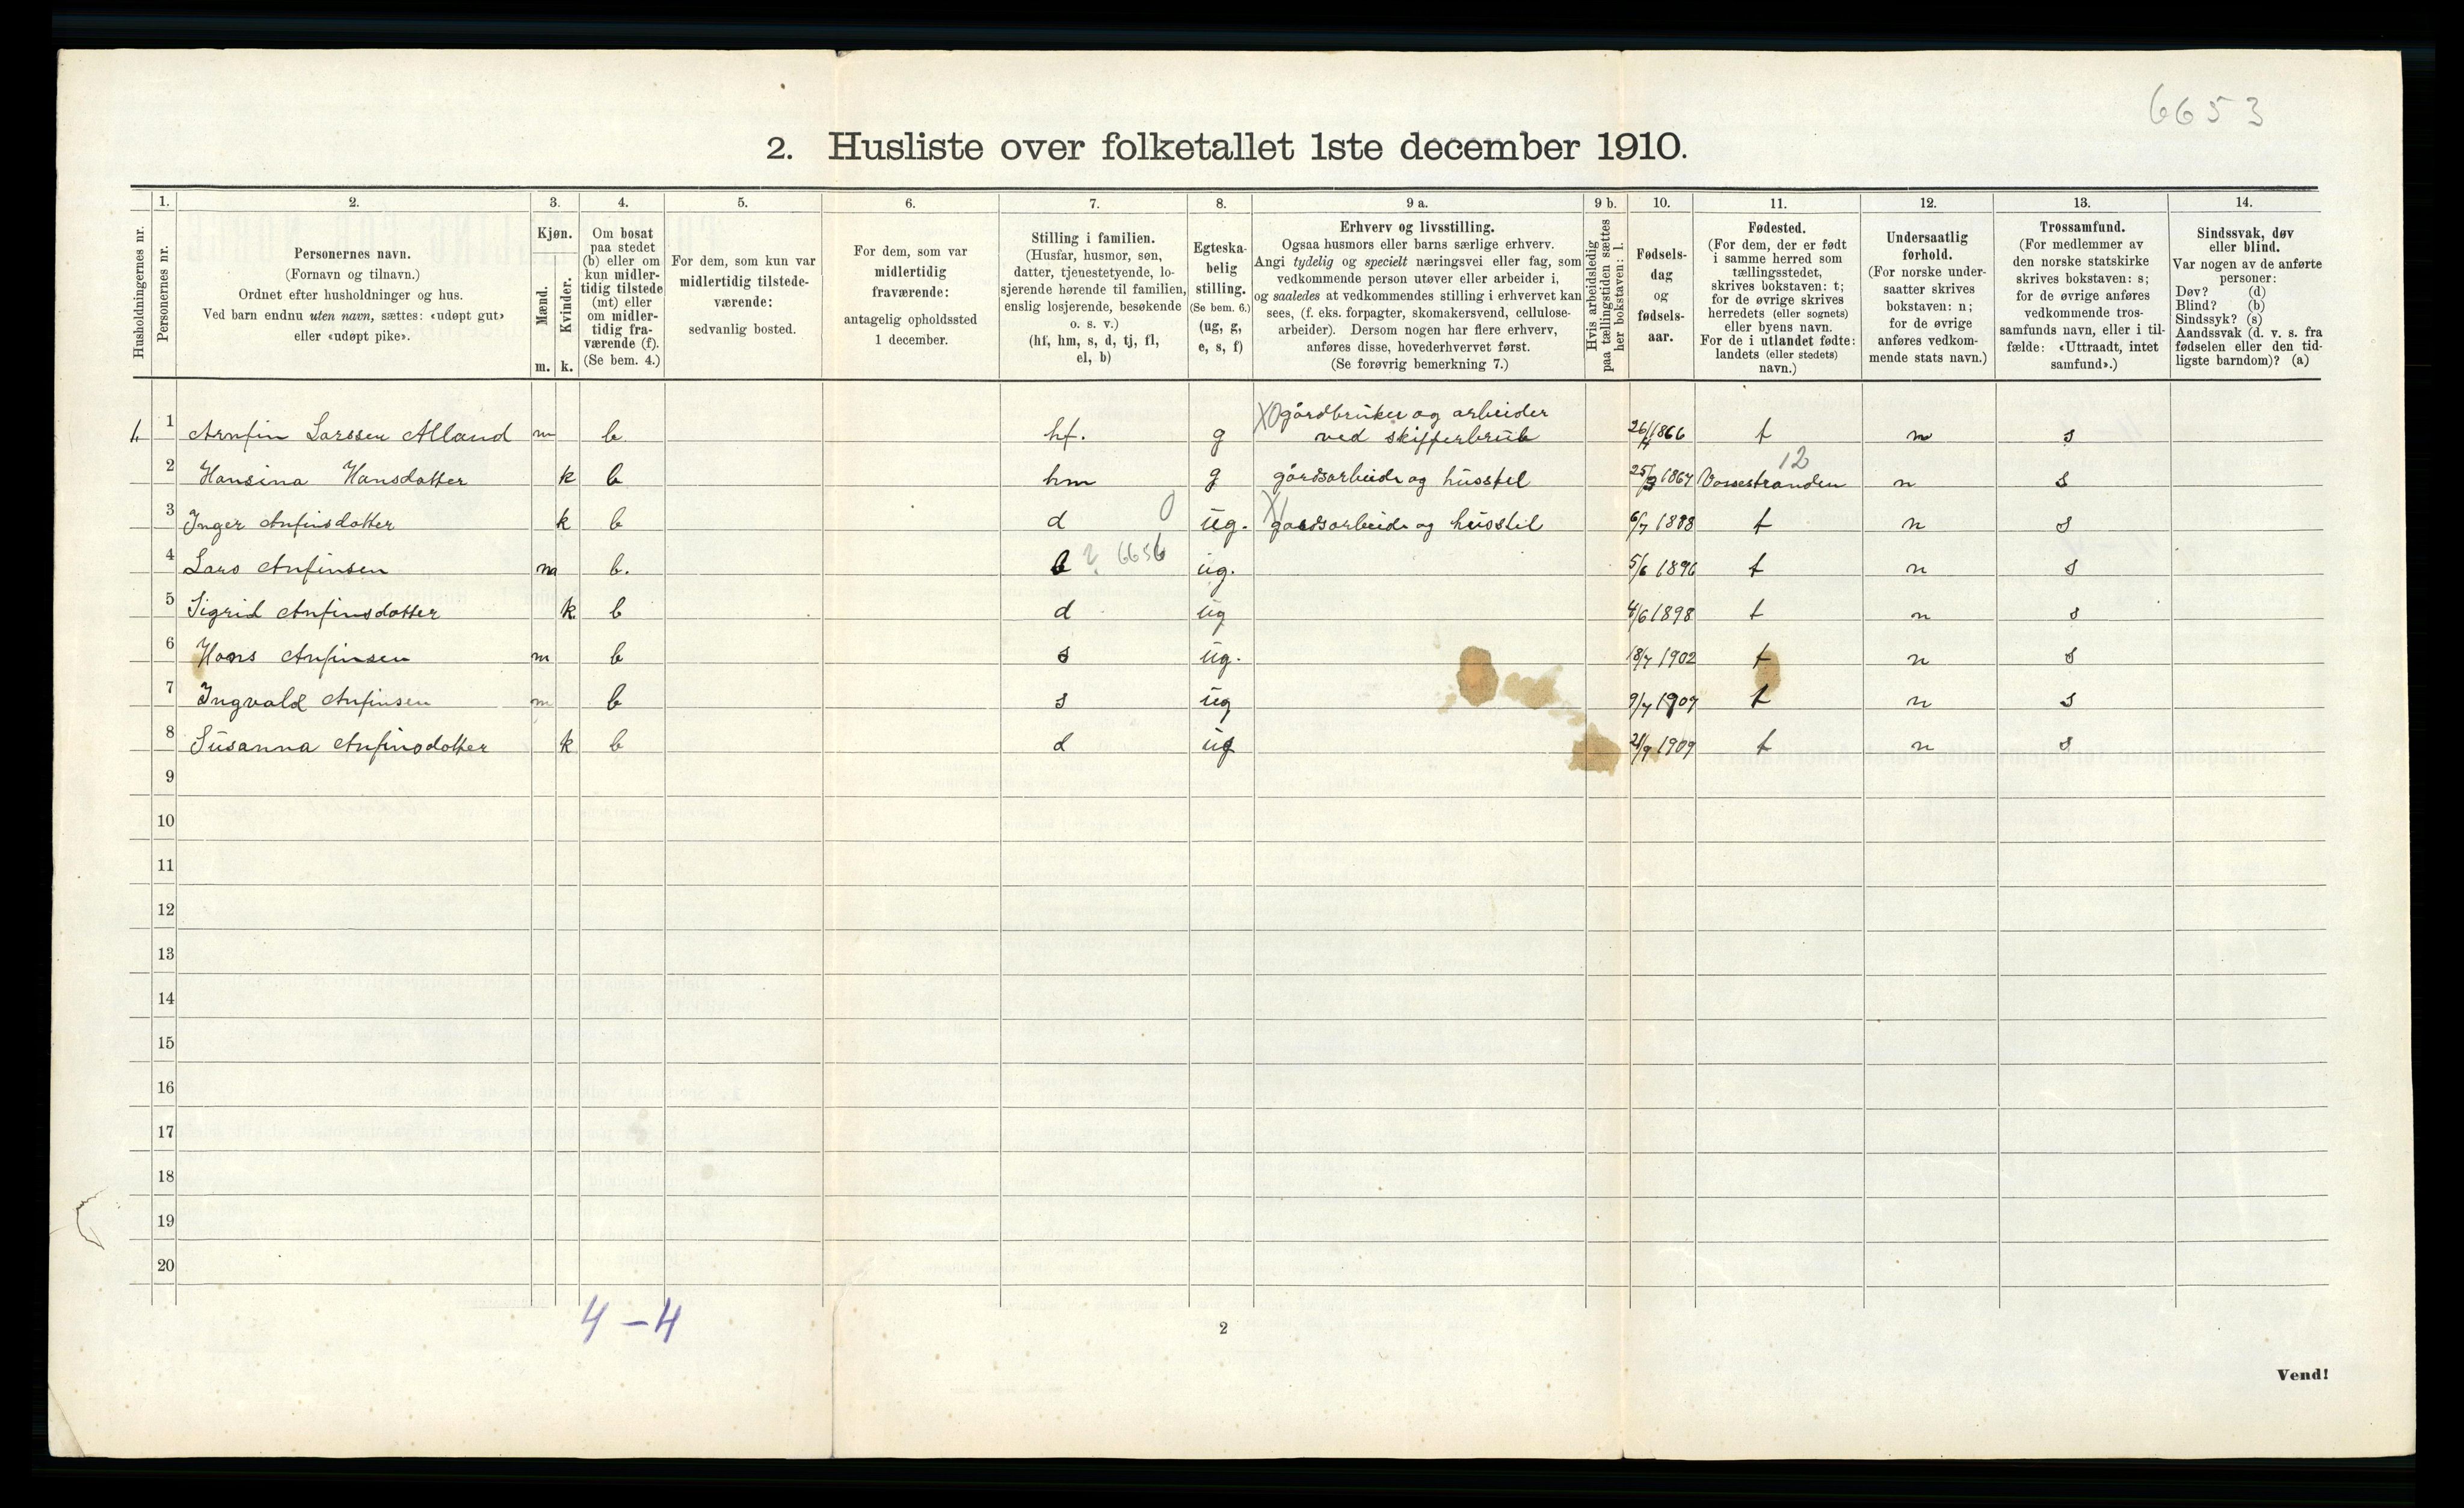 6653
2. Husliste over folketallet 1ste december 1910.
1. 2. 3. 4. 5. 6. 7. 8. 9 a. 9 b. 10. 11. 12. 13. 14.
Husholdningernes nr.
Personernes nr.
Personernes navn.
(Fornavn og tilnavn.)
Ordnet efter husholdninger og hus.
Ved barn endnu uten navn, sættes: «udøpt gut»
eller «udøpt pike».
Kjøn.
Mænd.
Kvinder.
m. k.
Om bosat
paa stedet
(b) eller om
kun midler-
tidig tilstede
(mt) eller
om midler-
tidig fra-
værende (f).
(Se bem. 4.)
For dem, som kun var
midlertidig tilstede-
værende:
sedvanlig bosted.
For dem, som var
midlertidig
fraværende:
antagelig opholdssted
1 december.
Stilling i familien.
(Husfar, husmor, søn,
datter, tjenestetyende, lo-
sjerende hørende til familien,
enslig losjerende, besøkende
o. s. v.)
(hf, hm, s, d, tj, fl,
el, b)
Egteska-
belig
stilling.
(Se bem. 6.)
(ug, g,
e, s, f)
Erhverv og livsstilling.
Ogsaa husmors eller barns særlige erhverv.
Angi tydelig og specielt næringsvei eller fag, som
vedkommende person utøver eller arbeider i,
og saaledes at vedkommendes stilling i erhvervet kan
sees, (f. eks. forpagter, skomakersvend, cellulose-
arbeider). Dersom nogen har flere erhverv,
anføres disse, hovederhvervet først.
(Se forøvrig bemerkning 7.)
Hvis arbeidsledig
paa tællingstiden sættes
her bokstaven: l.
Fødsels-
dag
og
fødsels-
aar.
Fødested.
(For dem, der er født
i samme herred som
tællingsstedet,
skrives bokstaven: t;
for de øvrige skrives
herredets (eller sognets)
eller byens navn.
For de i utlandet fødte:
landets (eller stedets)
navn.)
Undersaatlig
forhold.
(For norske under-
saatter skrives
bokstaven: n;
for de øvrige
anføres vedkom-
mende stats navn.)
Trossamfund.
(For medlemmer av
den norske statskirke
skrives bokstaven: s;
for de øvrige anføres
vedkommende tros-
samfunds navn, eller i til-
fælde: «Uttraadt, intet
samfund».)
Sindssvak, døv
eller blind.
Var nogen av de anførte
personer:
Døv? (d)
Blind? (b)
Sindssyk? (s)
Aandssvak (d. v. s. fra
fødselen eller den tid-
ligste barndom)? (a)
X0 gårdbruker og arbeider
1 Arnfin Larssen Alland m b hf. g ved skifferbrub 1866 t n s
12
2 Hansina Hansdatter k b hm g gårdsarbeide og husstel 25/3 1867 Vossestranden n s
3 Inger Anfinsdatter k b d 0 ug. X gardsarbeide og husstel 6/7 1888 t n s
4 Lars Anfinsen m b. b ? 6656 ug. 5/6 1896 t n s
5 Sigrid Anfinsdatter k b d ug 4/6 1898 t n s
6 Hans Anfinsen m b s ug. 18/7 1902 t n s
7 Ingvald Anfinsen m b s ug 9/7 1907 t n s
8 Susanna Anfinsdatter k b d ug 21/9 1909 t n s
9
10
11
12
13
14
15
16
17
18
19
20
4-4
2
Vend!